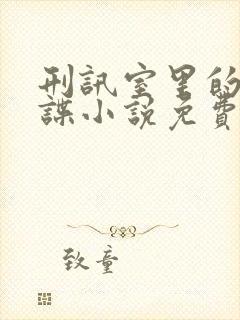 刑訊室里的
諜小說免費
致童